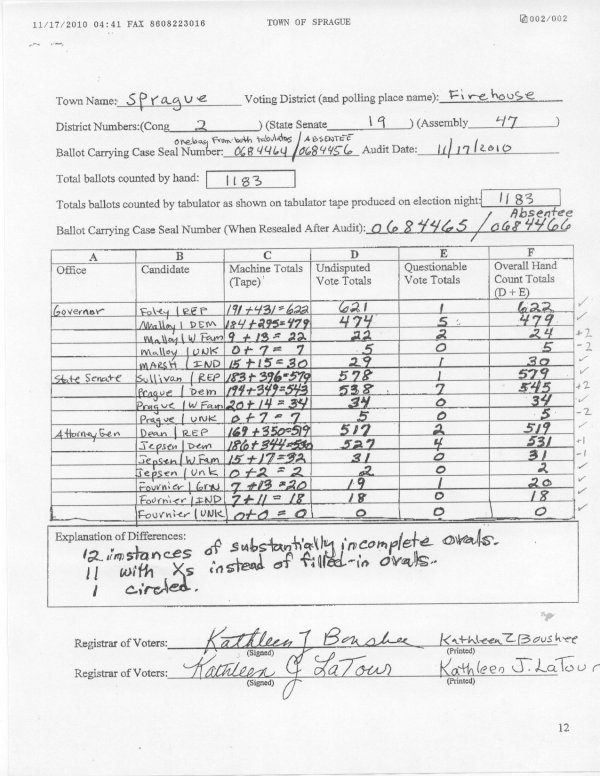 11/17/2010 04:41 FAX 8608223016 TOWN OF SPRAGUE 002/002
Town Name: Sprague Voting District (and polling place name): Firehouse
District Numbers:(Cong 2 ) (State Senate 19 ) (Assembly 47 )
one bag from both tabulators / ABSENTEE
Ballot Carrying Case Seal Number: 0684464 / 0684456 Audit Date: 11/17/2010
Total ballots counted by hand: 1183
Totals ballots counted by tabulator as shown on tabulator tape produced on election night: 1183
Absentee
Ballot Carrying Case Seal Number (When Resealed After Audit): 0684465 / 0684466
A B C D E F
Office Candidate Machine Totals (Tape) Undisputed Vote Totals Questionable Vote Totals Overall Hand Count Totals (D + E)
Governor Foley | REP 191+431=622 621 1 622 ✓
Malloy | DEM 184+295=479 474 5 479 ✓
Malloy | W Fam 9 + 13 = 22 22 2 24 +2
Malloy | UNK 0+7= 7 5 0 5 -2
MARSH | IND 15+15=30 29 1 30 ✓
State Senate Sullivan | REP 183+396=579 578 1 579 ✓
Prague | Dem 194+349=543 538 7 545 +2
Prague | W Fam 20+14=34 34 0 34 ✓
Prague | UNK 0+7=7 5 0 5 -2
Attorney Gen Dean | REP 169+350=519 517 2 519 ✓
Jepsen | Dem 186+344=530 527 4 531 +1
Jepsen | W Fam 15+17=32 31 0 31 -1
Jepsen | Unk 0+2=2 2 0 2 ✓
Fournier | GRN 7+13=20 19 1 20 ✓
Fournier | IND 7+11=18 18 0 18 ✓
Fournier | UNK 0+0=0 0 0 0 ✓
Explanation of Differences:
12 instances of substantially incomplete ovals.
11 with Xs instead of filled-in ovals.
1 circled.
Registrar of Voters: Kathleen J Boushee Kathleen Z Boushee
(Signed) (Printed)
Registrar of Voters: Kathleen J LaTour Kathleen J. LaTour
(Signed) (Printed)
12